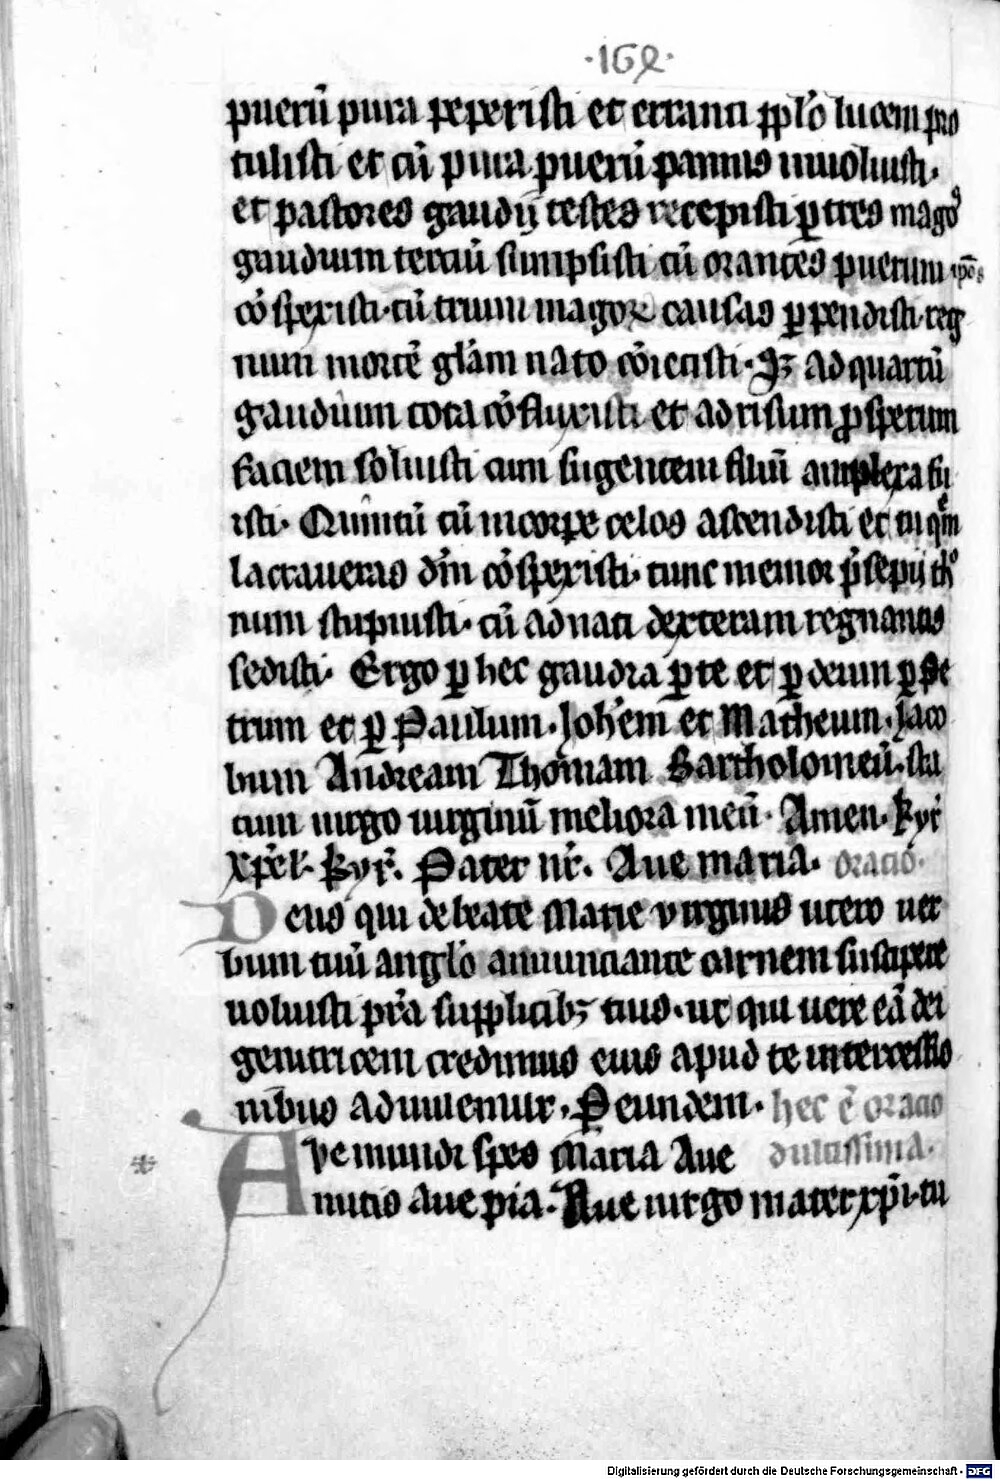 ·162·
puerū pura peperisti et erranti ꝑplo lucem pro
tulisti et cū pura puerū pannis inuoluisti·
et pastores gaudij testes recepisti ꝑ tres magos
gaudium terciū sumpsisti cū orantes puerum ipōs
cōspexisti· cū trium magoꝝ causas ꝑpendisti· reg
num mortē glam nato cōiecisti· Sꝫ ad quartū
gaudium tota cōfluxisti et ad risum ꝓsperum
faciem soluisti cum sugentem filiū amplexa fu
isti· Quintū cū in corpe celos ascendisti et tu qm
lactaueras dm cōspexisti· tunc memor p̄sepij th
num stupuisti· cū ad nati dexteram regnatis
sedisti· Ergo ꝑ hec gaudia ꝑ te et ꝑ deum ꝑ pe
trum et ꝑ Paulum· Joh'em et Matheum· Jaco
bum Andream Thomam Bartholomeū· sta
tum uirgo uirginū meliora meū· Amen· kyr
xpel· kyr· Pater nr· Aue maria· oracio·
Deus qui de beate Marie virginis utero uer
bum tuū anglo annunciante carnem suscipere
uoluisti pra supplicibꝫ tuis· ut qui uere eā dei
genitricem credimus eius apud te intercessio
nibus adiuuemur· Per eundem· hec ē oracio
Ave mundi spes Maria Aue dulcissima·
mitis aue pia· Aue uirgo mater xpi· tu
Digitalisierung gefördert durch die Deutsche Forschungsgemeinschaft - DFG